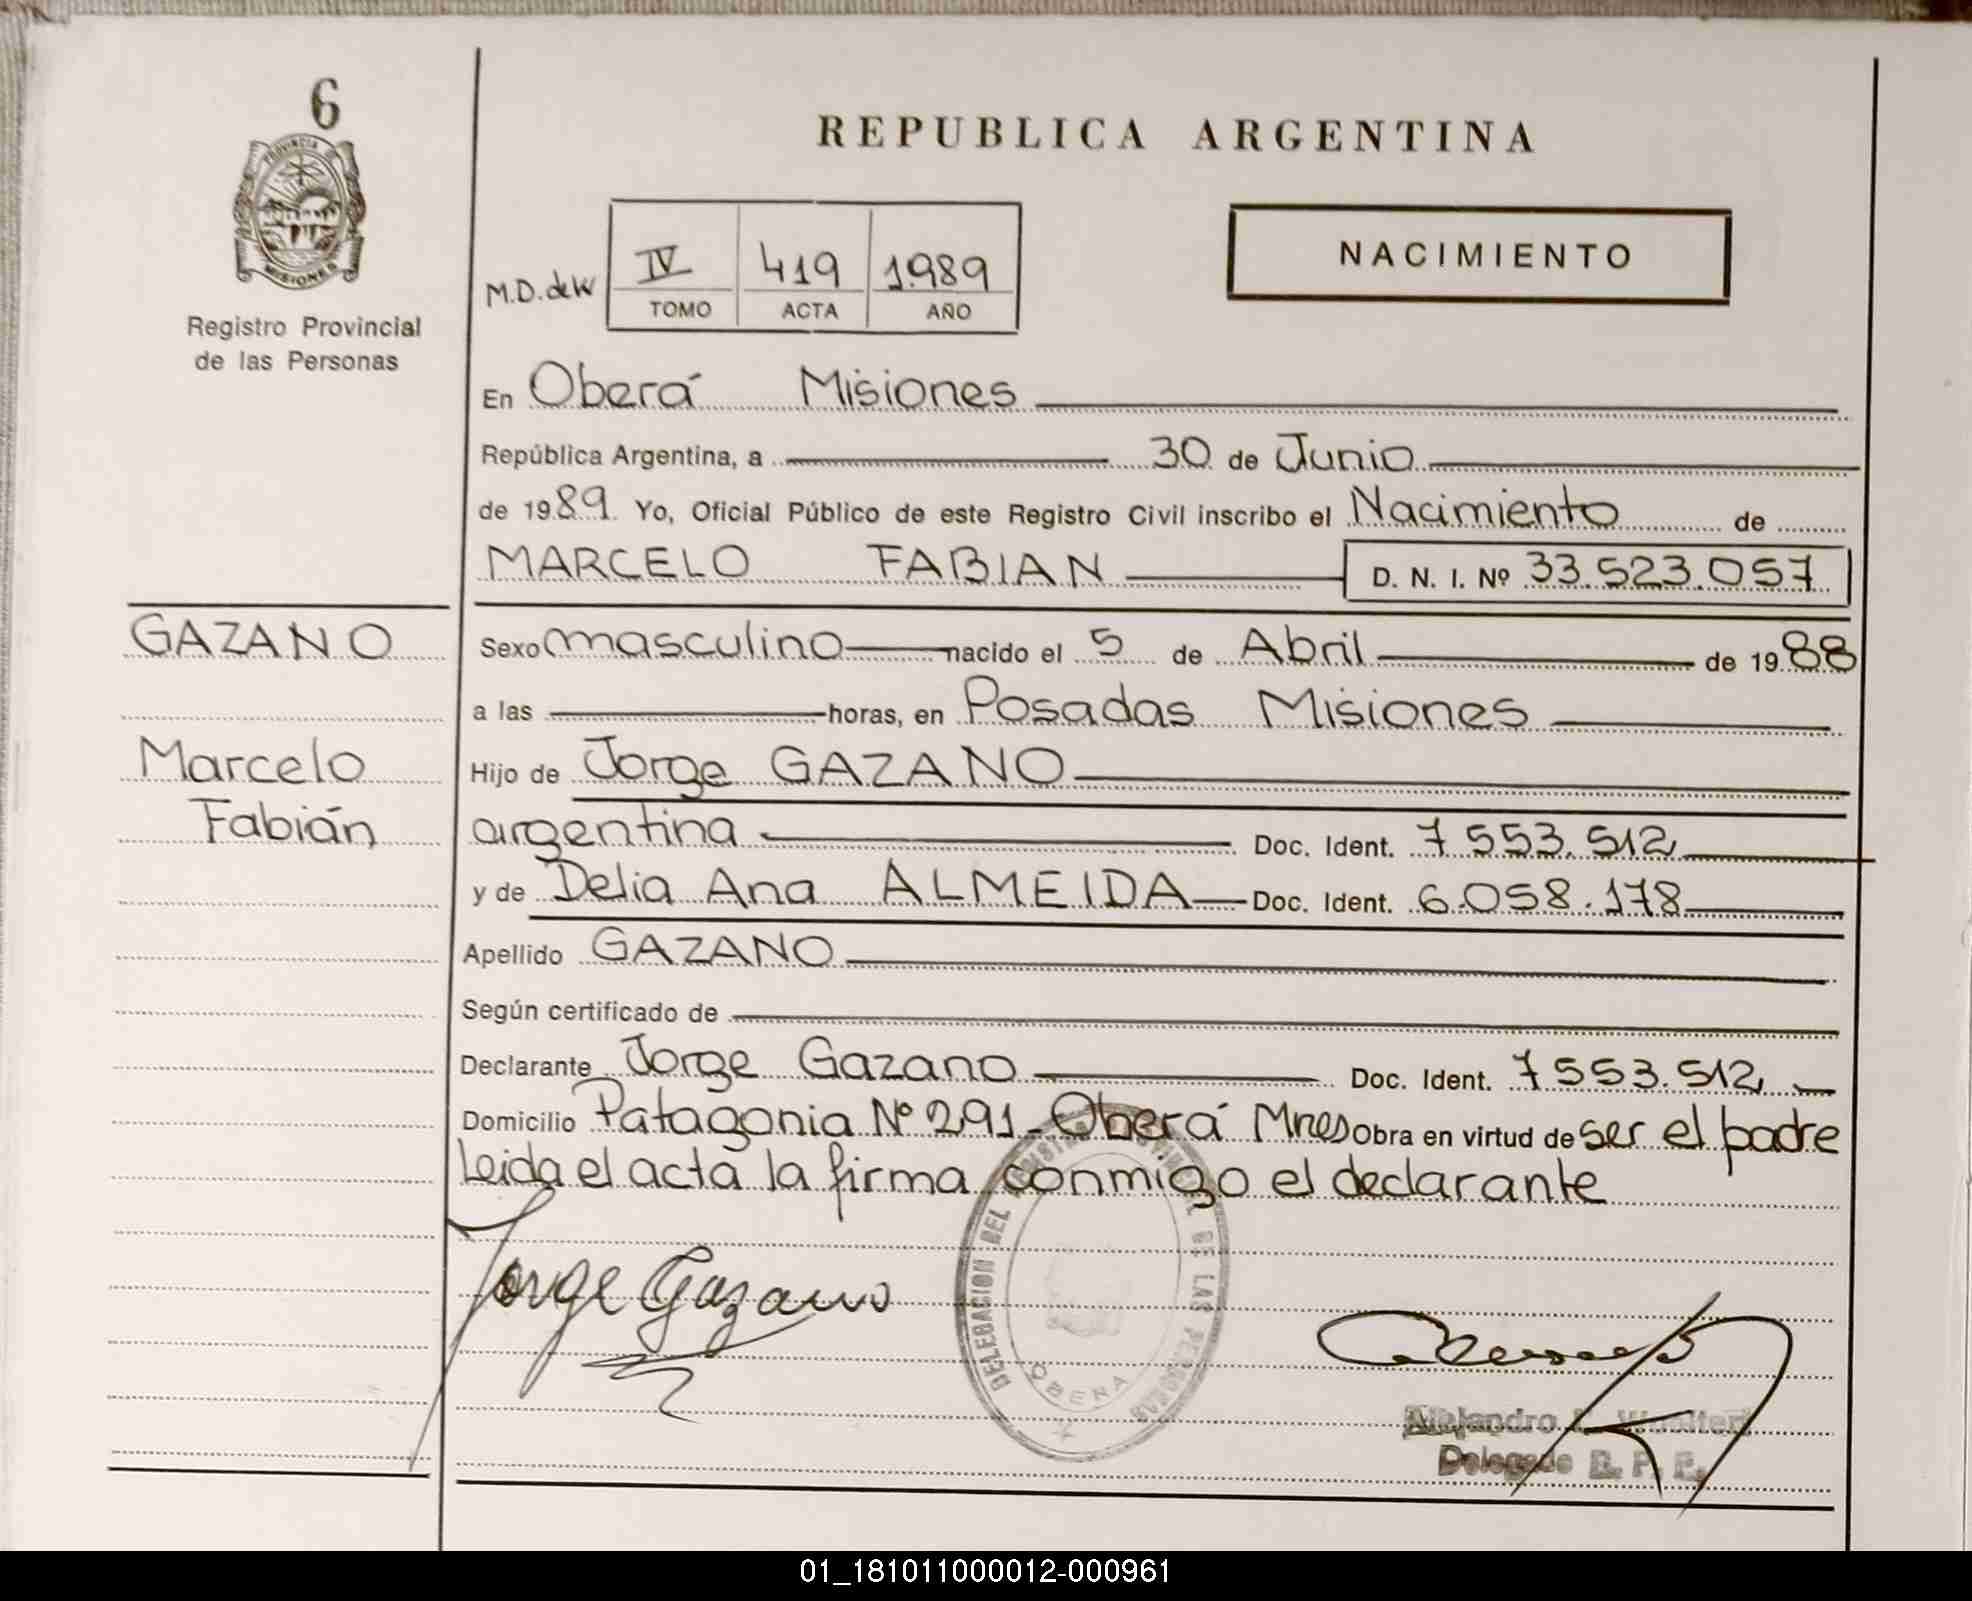 6
PROVINCIA D
MISIONES
Registro Provincial
de las Personas
REPUBLICA ARGENTINA
NACIMIENTO
M.D. de W
IV 419 1.989
TOMO ACTA AÑO
En Oberá Misiones
República Argentina, a 30 de Junio
de 1989. Yo, Oficial Público de este Registro Civil inscribo el Nacimiento de
MARCELO FABIAN D. N. I. Nº 33.523.057
GAZANO
Marcelo
Fabián
Sexo masculino nacido el 5 de Abril de 1988
a las horas, en Posadas Misiones
Hijo de Jorge GAZANO
argentina Doc. Ident. 7 553.512
y de Delia Ana ALMEIDA Doc. Ident. 6.058.178
Apellido GAZANO
Según certificado de
Declarante Jorge Gazano Doc. Ident. 7 553.512
Domicilio Patagonia Nº 291 - Oberá Mnes Obra en virtud de ser el padre
Leida el acta la firma conmigo el declarante
Jorge Gazano
DELEGACION DEL DE LAS PERSONAS
OBERA
Alejandro
Delegado R. P. P.
01_181011000012-000961